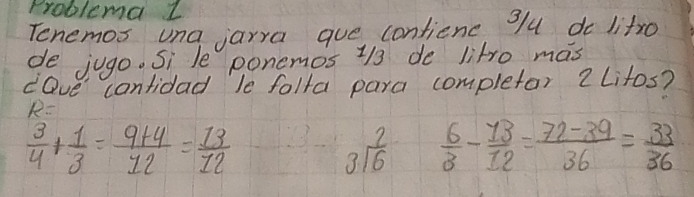 Problema 1
Tenemos una jarra que contiene 3/4 de litro
de jugo. Si le ponemos 1/3 de litro más
¿Qué cantidad le falta para completar 2 Litos?
R=
3/4 + 1/3 = 9+4/12 = 13/12    2 3|6    6/3 - 13/12 = 72-39/36 = 33/36